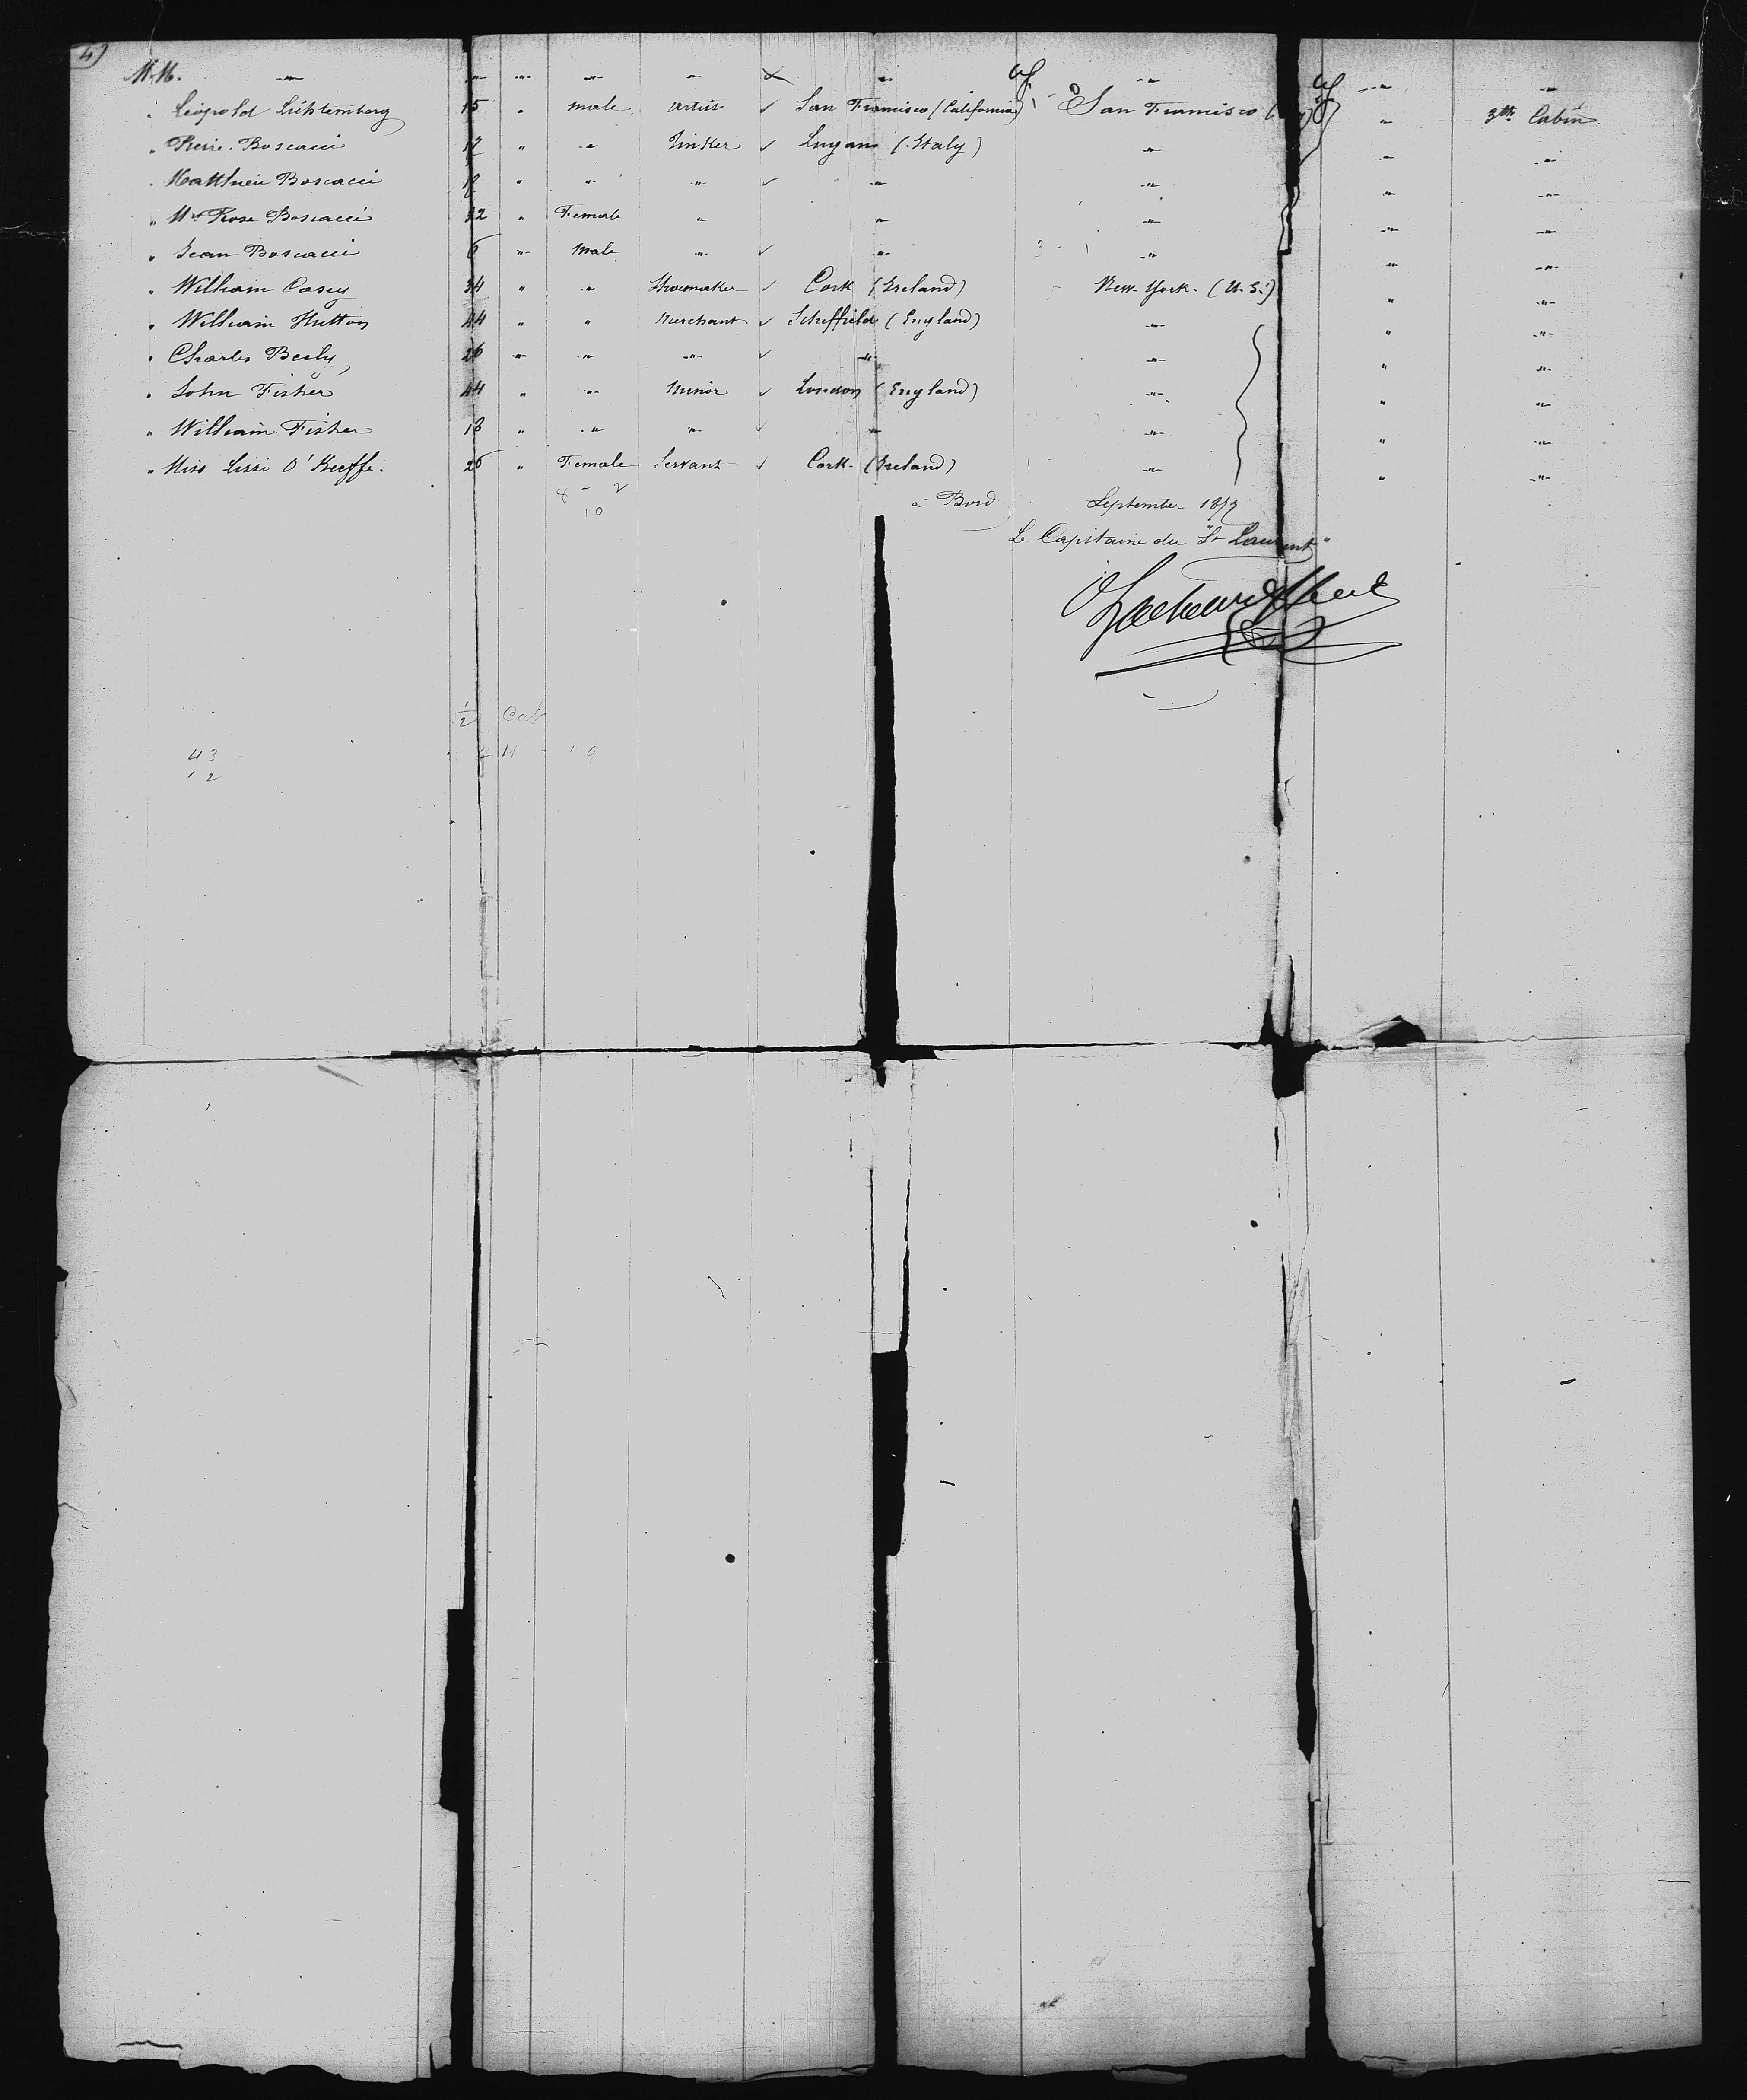 4)
M.M. " " " " " " " " "
" Léopold Lichtemberg 15 " Male Artist ✓ San Francisco (California) San Francisco ( " 3th Cabin
" Pierre Boscacci " " Tinker ✓ Lugano (Italy) " " "
" Matthieu Boscacci " " " ✓ " " " "
" Mrs Rose Boscacci 32 " Female " " " " "
" Jean Boscacci 6 " Male " ✓ " " " "
" William Casey 34 " " Shoemaker ✓ Cork (Ireland) New-York. (U.S.) " "
" William Hutton 44 " " Merchant ✓ Scheffield (England) " " "
" Charles Beely 26 " " " ✓ " " " "
" John Fisher 44 " " Minor ✓ London (England) " " "
" William Fisher 18 " " " ✓ " " " "
" Miss Lissi O'Keeffe. 26 " Female Servant ✓ Cork (Ireland) " " "
8 - 2
10
à Bord September 187
Le Capitaine du "St Laurent"
1/2 Cab
43
12